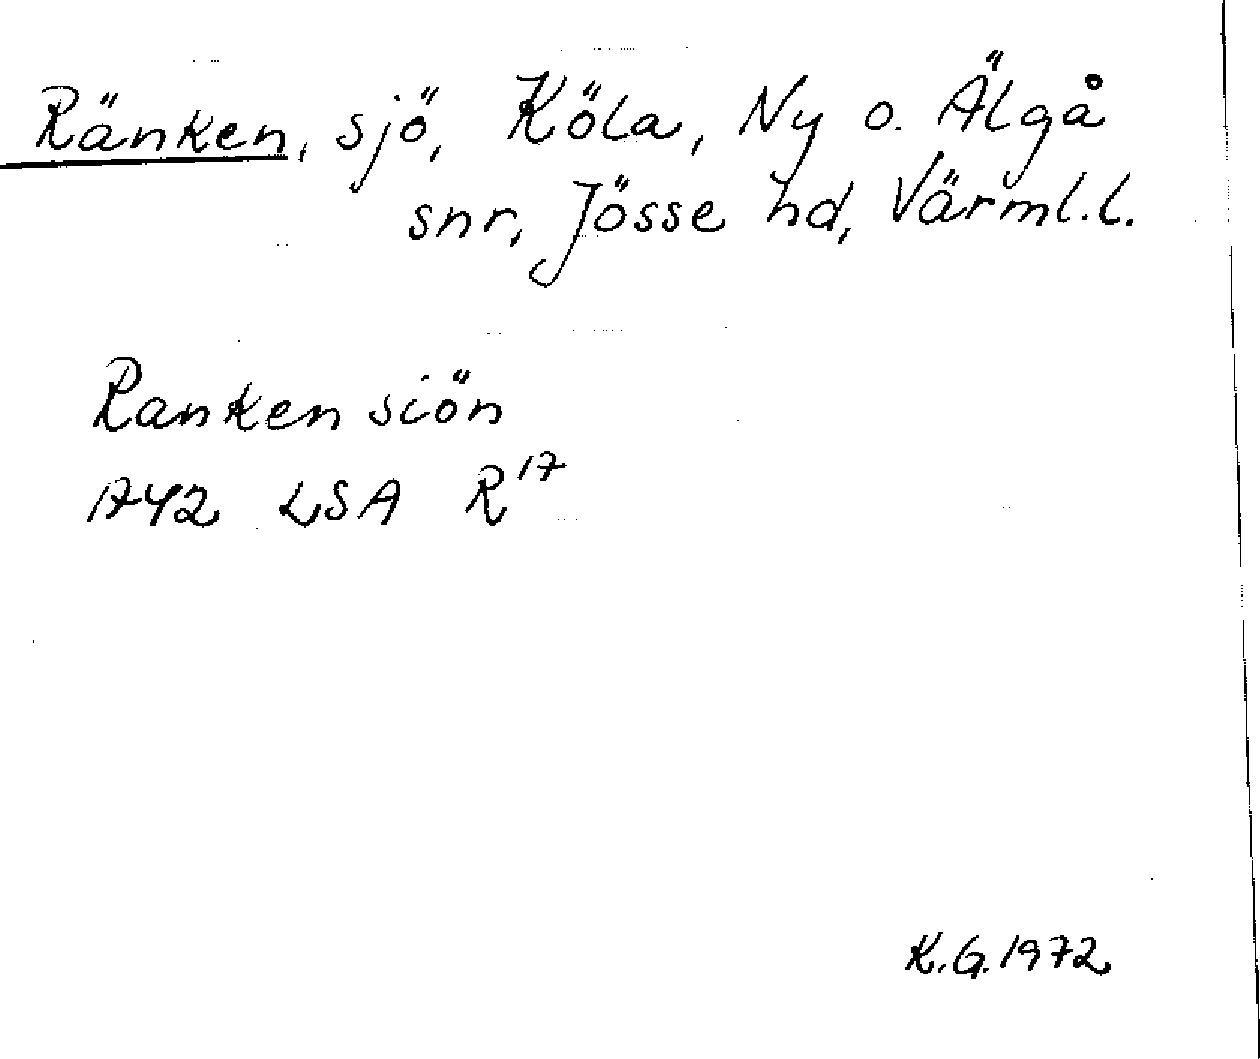 Ränken, sjö, Köla, Ny o. Älgå
snr, Jösse hd, Värml.l.
Ranken siön
1742 LSA R17
K.G.1972